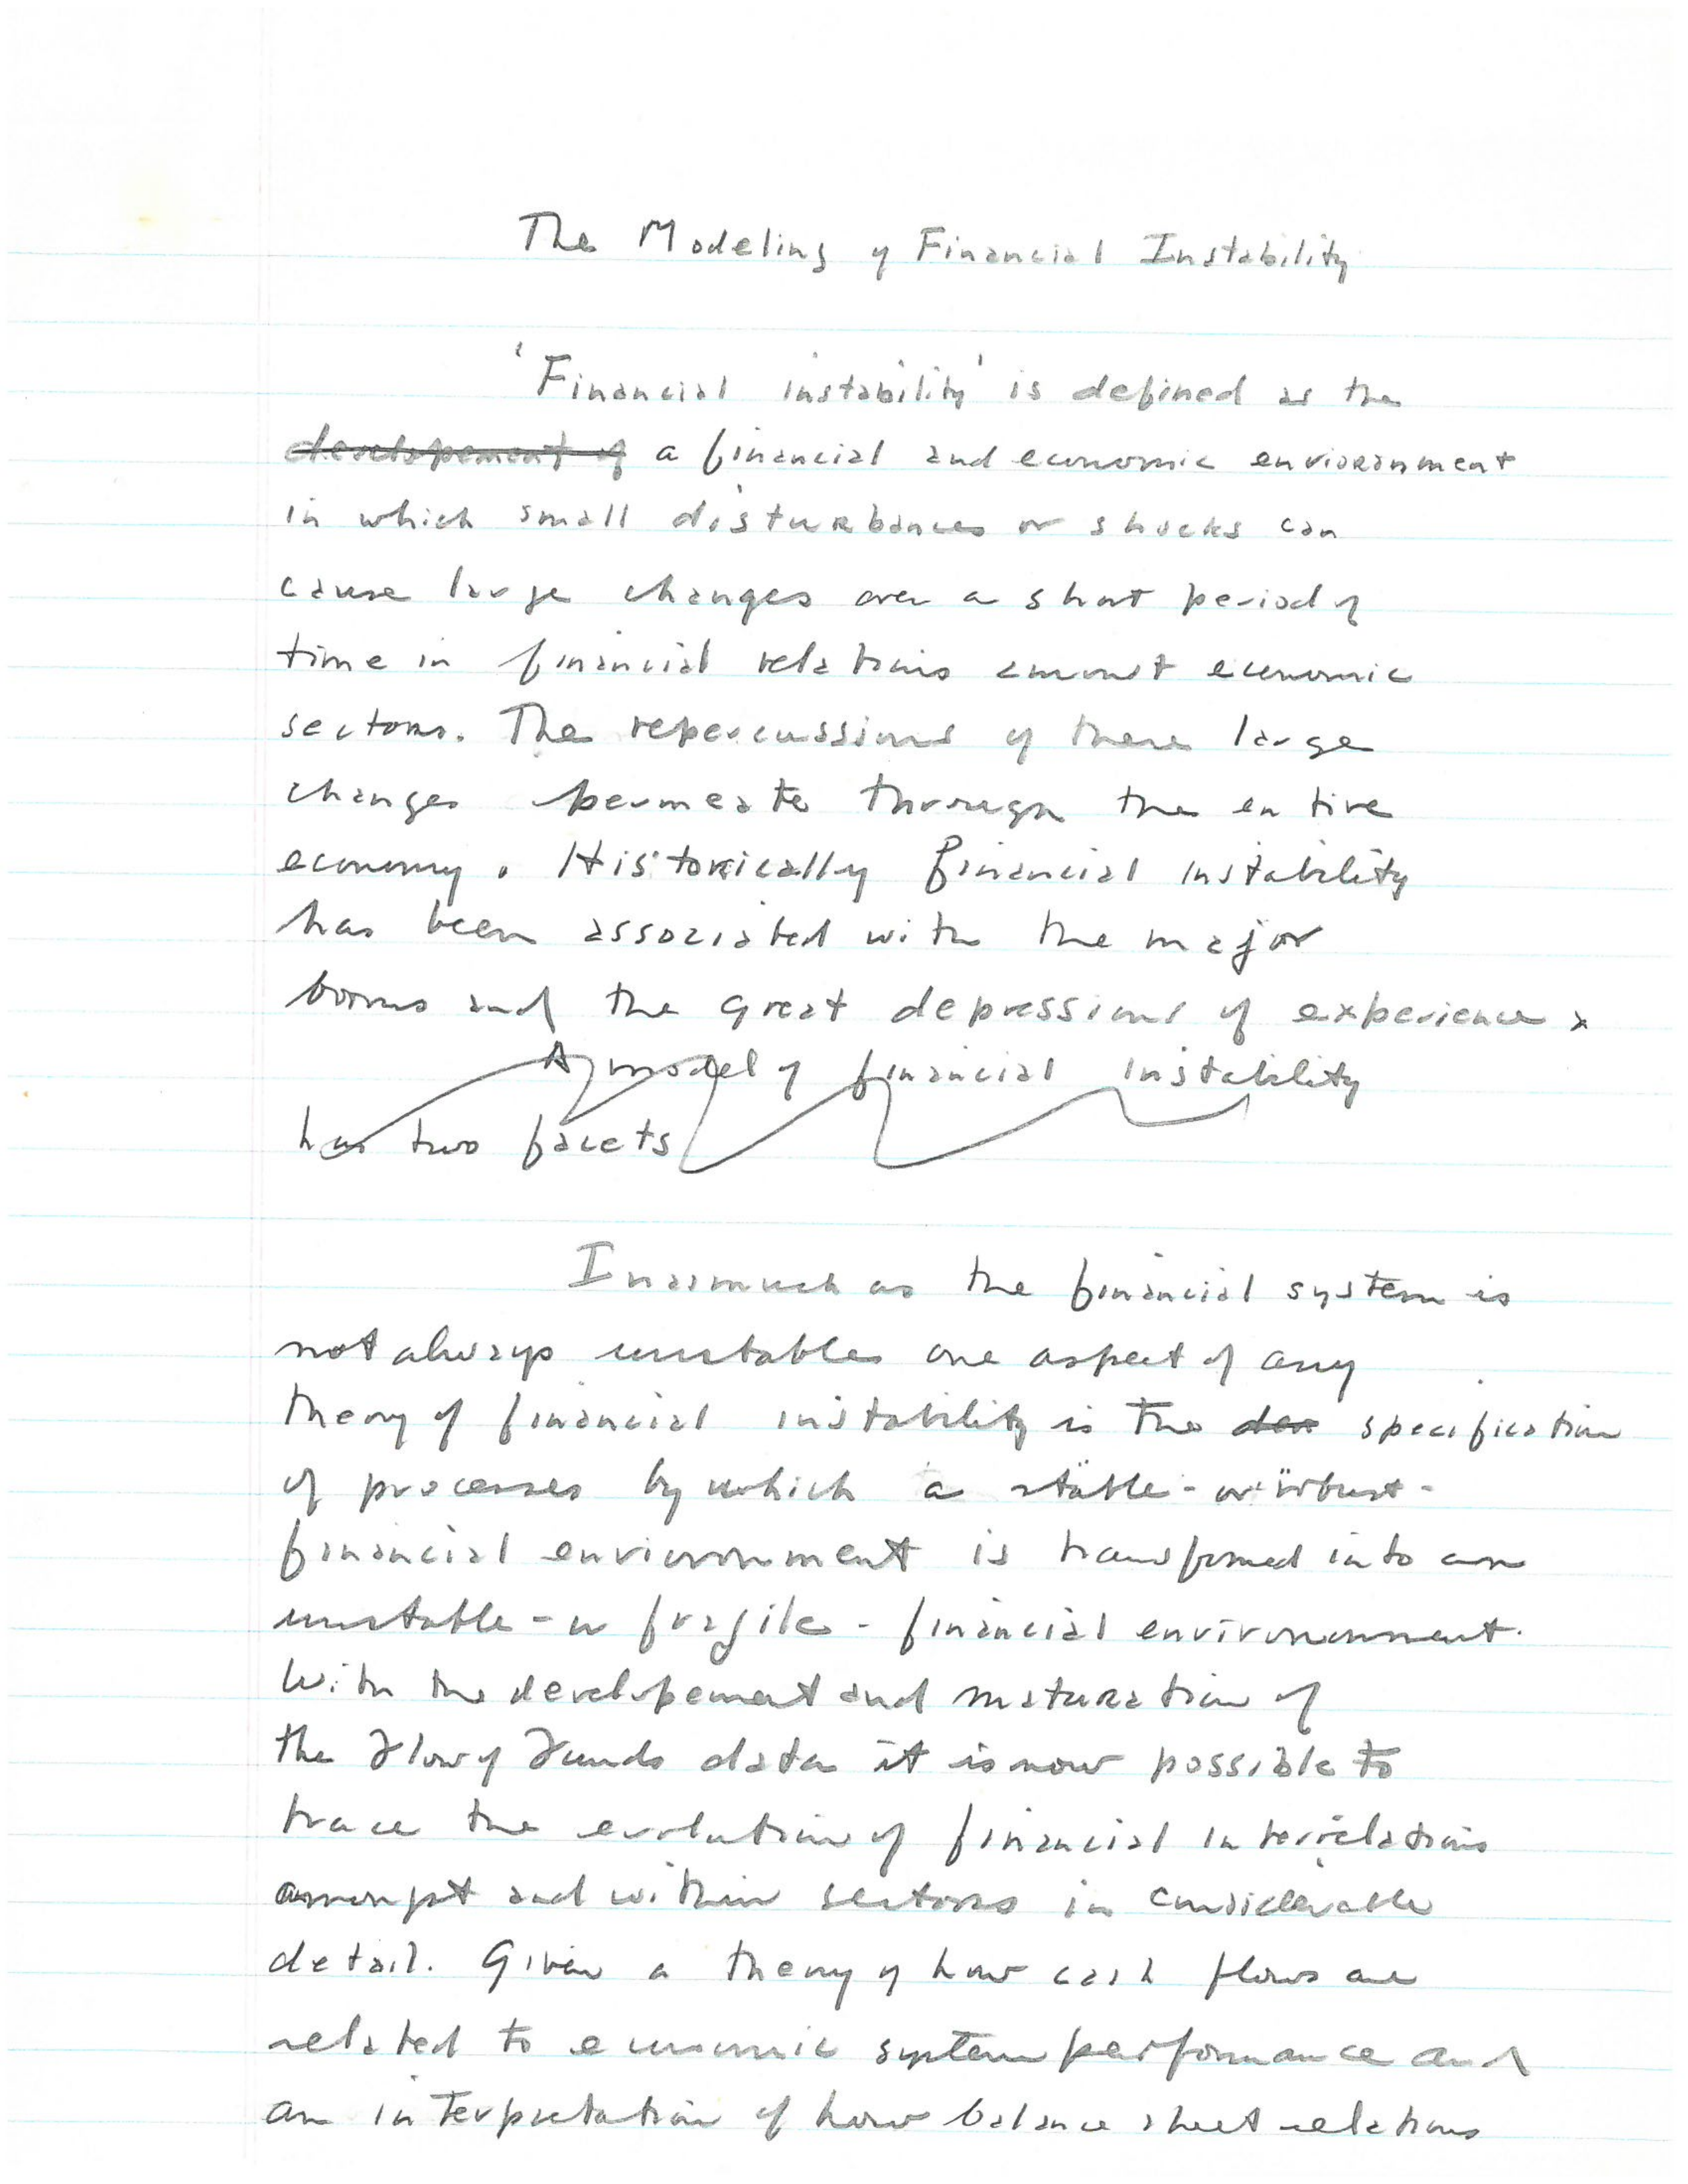 The Modeling of Financial Instability
'Financial instability' is defined as the
developement of a financial and economic envioronment
in which small disturbances or shocks can
cause large changes over a short period of
time in financial relations amonst economic
sectors. The repercussions of these large
changes permeate through the entire
economy. Historically financial instability
has been associated with the major
booms and the great depressions of experience.
A model of financial instability
has two facets
Inasmuch as the financial system is
not always unstable one aspect of any
theory of financial instability is the specification
of processes by which a stable - or robust -
financial envioronment is transformed into an
unstable - or fragile - financial environment.
With the developement and maturation of
the Flow of Funds data it is now possible to
trace the evolution of financial interrelations
amongst and within sectors in considerable
detail. Given a theory of how cash flows are
related to economic system performance and
an interpretation of how balance sheet relations